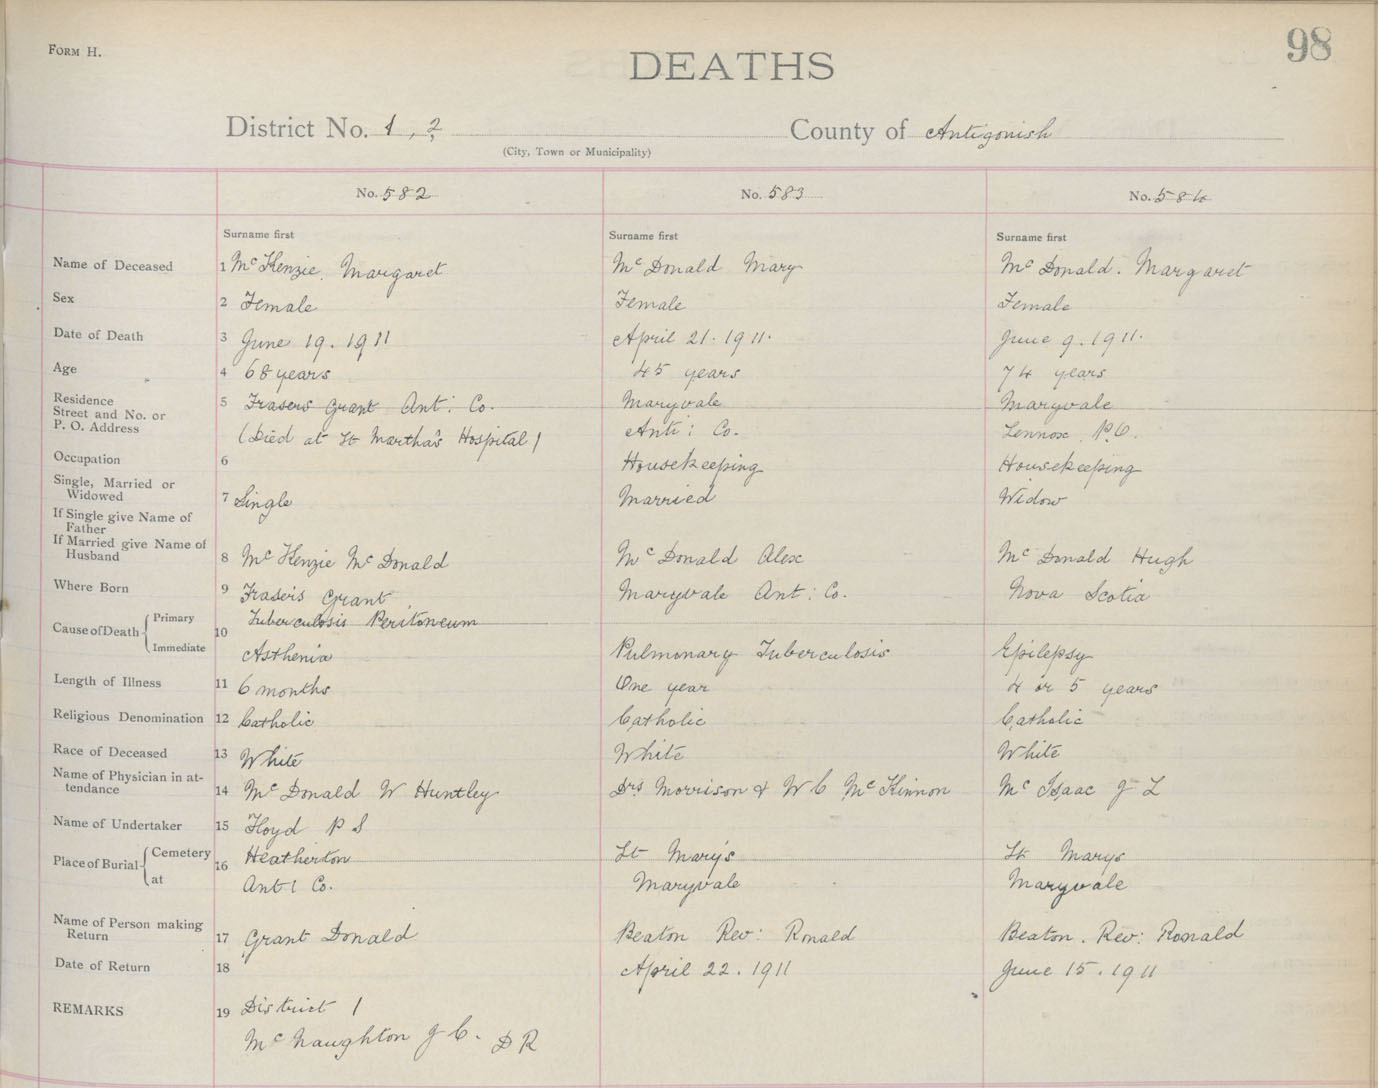 FORM H.
98
DEATHS
District No. 1, 2
County of Antigonish
(City, Town or Municipality)
No. 582
No. 583
No. 584
Surname first
Surname first
Surname first
Name of Deceased 1 McKenzie, Margaret
McDonald Mary
McDonald. Margaret
Sex 2 Female
Female
Female
Date of Death 3 June 19. 1911
April 21. 1911.
June 9. 1911.
Age 4 68 years
45 years
74 years
Residence 5 Frasers Grant Ant: Co.
Maryvale
Maryvale
Street and No. or
P. O. Address
(Died at St Martha's Hospital)
Anti: Co.
Lennox P.O.
Occupation 6
Housekeeping
Housekeeping
Single, Married or
Widowed 7 Single
Married
Widow
If Single give Name of
Father
If Married give Name of
Husband 8 McKenzie McDonald
McDonald Alex
McDonald Hugh
Where Born 9 Frasers Grant
Maryvale Ant: Co.
Nova Scotia
Cause of Death 10
Primary Tuberculosis Peritoneum
Immediate Asthenia
Pulmonary Tuberculosis
Epilepsy
Length of Illness 11 6 months
One year
4 or 5 years
Religious Denomination 12 Catholic
Catholic
Catholic
Race of Deceased 13 White
White
White
Name of Physician in at-
tendance 14 McDonald W Huntley
Drs Morrison & W C McKinnon
McIsaac J L
Name of Undertaker 15 Floyd P S
Place of Burial 16
Cemetery Heatherton
St Mary's
St Marys
at Ant: Co.
Maryvale
Maryvale
Name of Person making
Return 17 Grant Donald
Beaton Rev: Ronald
Beaton. Rev: Ronald
Date of Return 18
April 22. 1911
June 15. 1911
REMARKS 19 District 1
McNaughton J C. D R